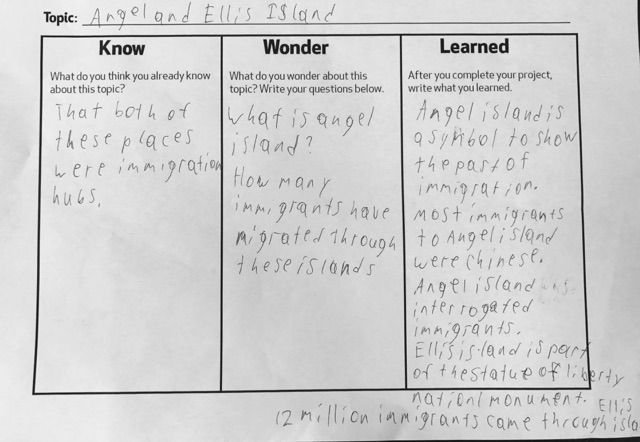 Topic: Angel and Ellis Island
Know
What do you think you already know
about this topic?
That both of
these places
were immigration
hubs.
Wonder
What do you wonder about this
topic? Write your questions below.
What is angel
island?
How many
immigrants have
migrated through
these islands
Learned
After you complete your project,
write what you learned.
Angel island is
a symbol to show
the past of
immigration.
most immigrants
to Angel island
were Chinese.
Angel island
interrogated
immigrants.
Ellis island is part
of the statue of liberty
nationl monument.
12 million immigrants came through Ellis isla